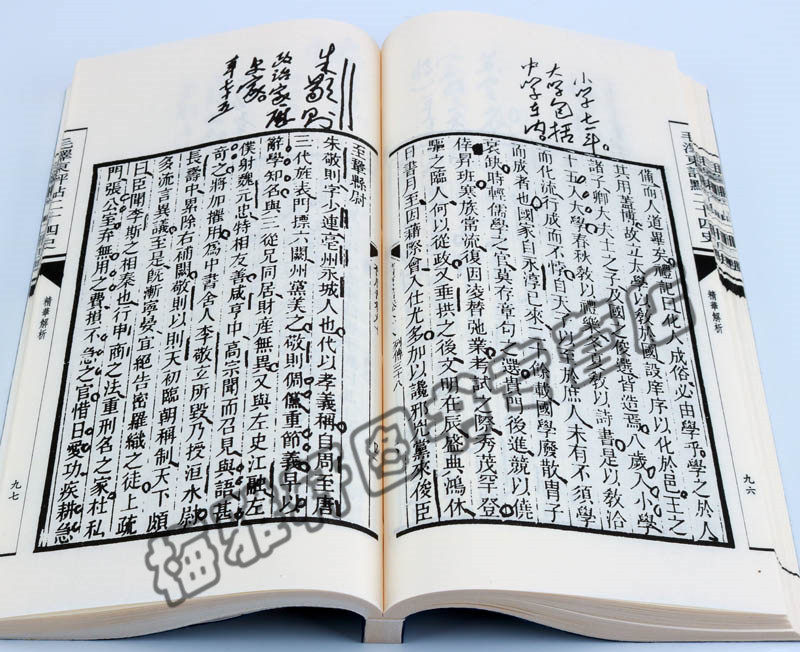 小学七年。
大学包括
中学在内
毛澤東評點二十四史
精華解析
九六
備而人道畢矣禮記曰化人成俗必由學乎學之於人
其用蓋博故立太學以敎於國設庠序以化於邑王之
諸子卿大夫士之子及國之俊選皆造焉八歲入小學
十五入大學春秋敎以禮樂冬夏敎以詩書是以敎洽
而化流行成而不悖自天子以至於庶人未有不須學
而成者也國家自永淳已來二十餘載國學廢散冑子
衰缺時輕儒學之官莫存章句之選貴門後進競以僥
倖昇班寒族常流復因凌替弛業考試之際秀茂罕登
驅之臨人何以從政又垂拱之後文明在辰盛典鴻休
日書月至因藉際會入仕尤多加以讒邪凶黨來俊臣
列傳三十八
朱敬则
政治家歷
史家
年七十五
至華縣尉
朱敬則字少連亳州永城人也代以孝義稱自周至唐
三代旌表門標六闕州黨美之敬則倜儻重節義早以
辭學知名與三從兄同居財產無異又與左史江融左
僕射魏元忠特相友善咸亨中高宗聞而召見與語甚
奇之將加擢用為中書舍人李敬玄所毀乃授洹水尉
長壽中累除右補闕敬則以則天初臨朝稱制天下頗
多流言異議至是既漸寧晏宜絕告密羅織之徒上疏
曰臣聞李斯之相秦也行申商之法重刑名之家杜私
門張公室弃無用之費損不急之官惜日愛功疾耕急
毛澤東評點二十四史
精華解析
九七